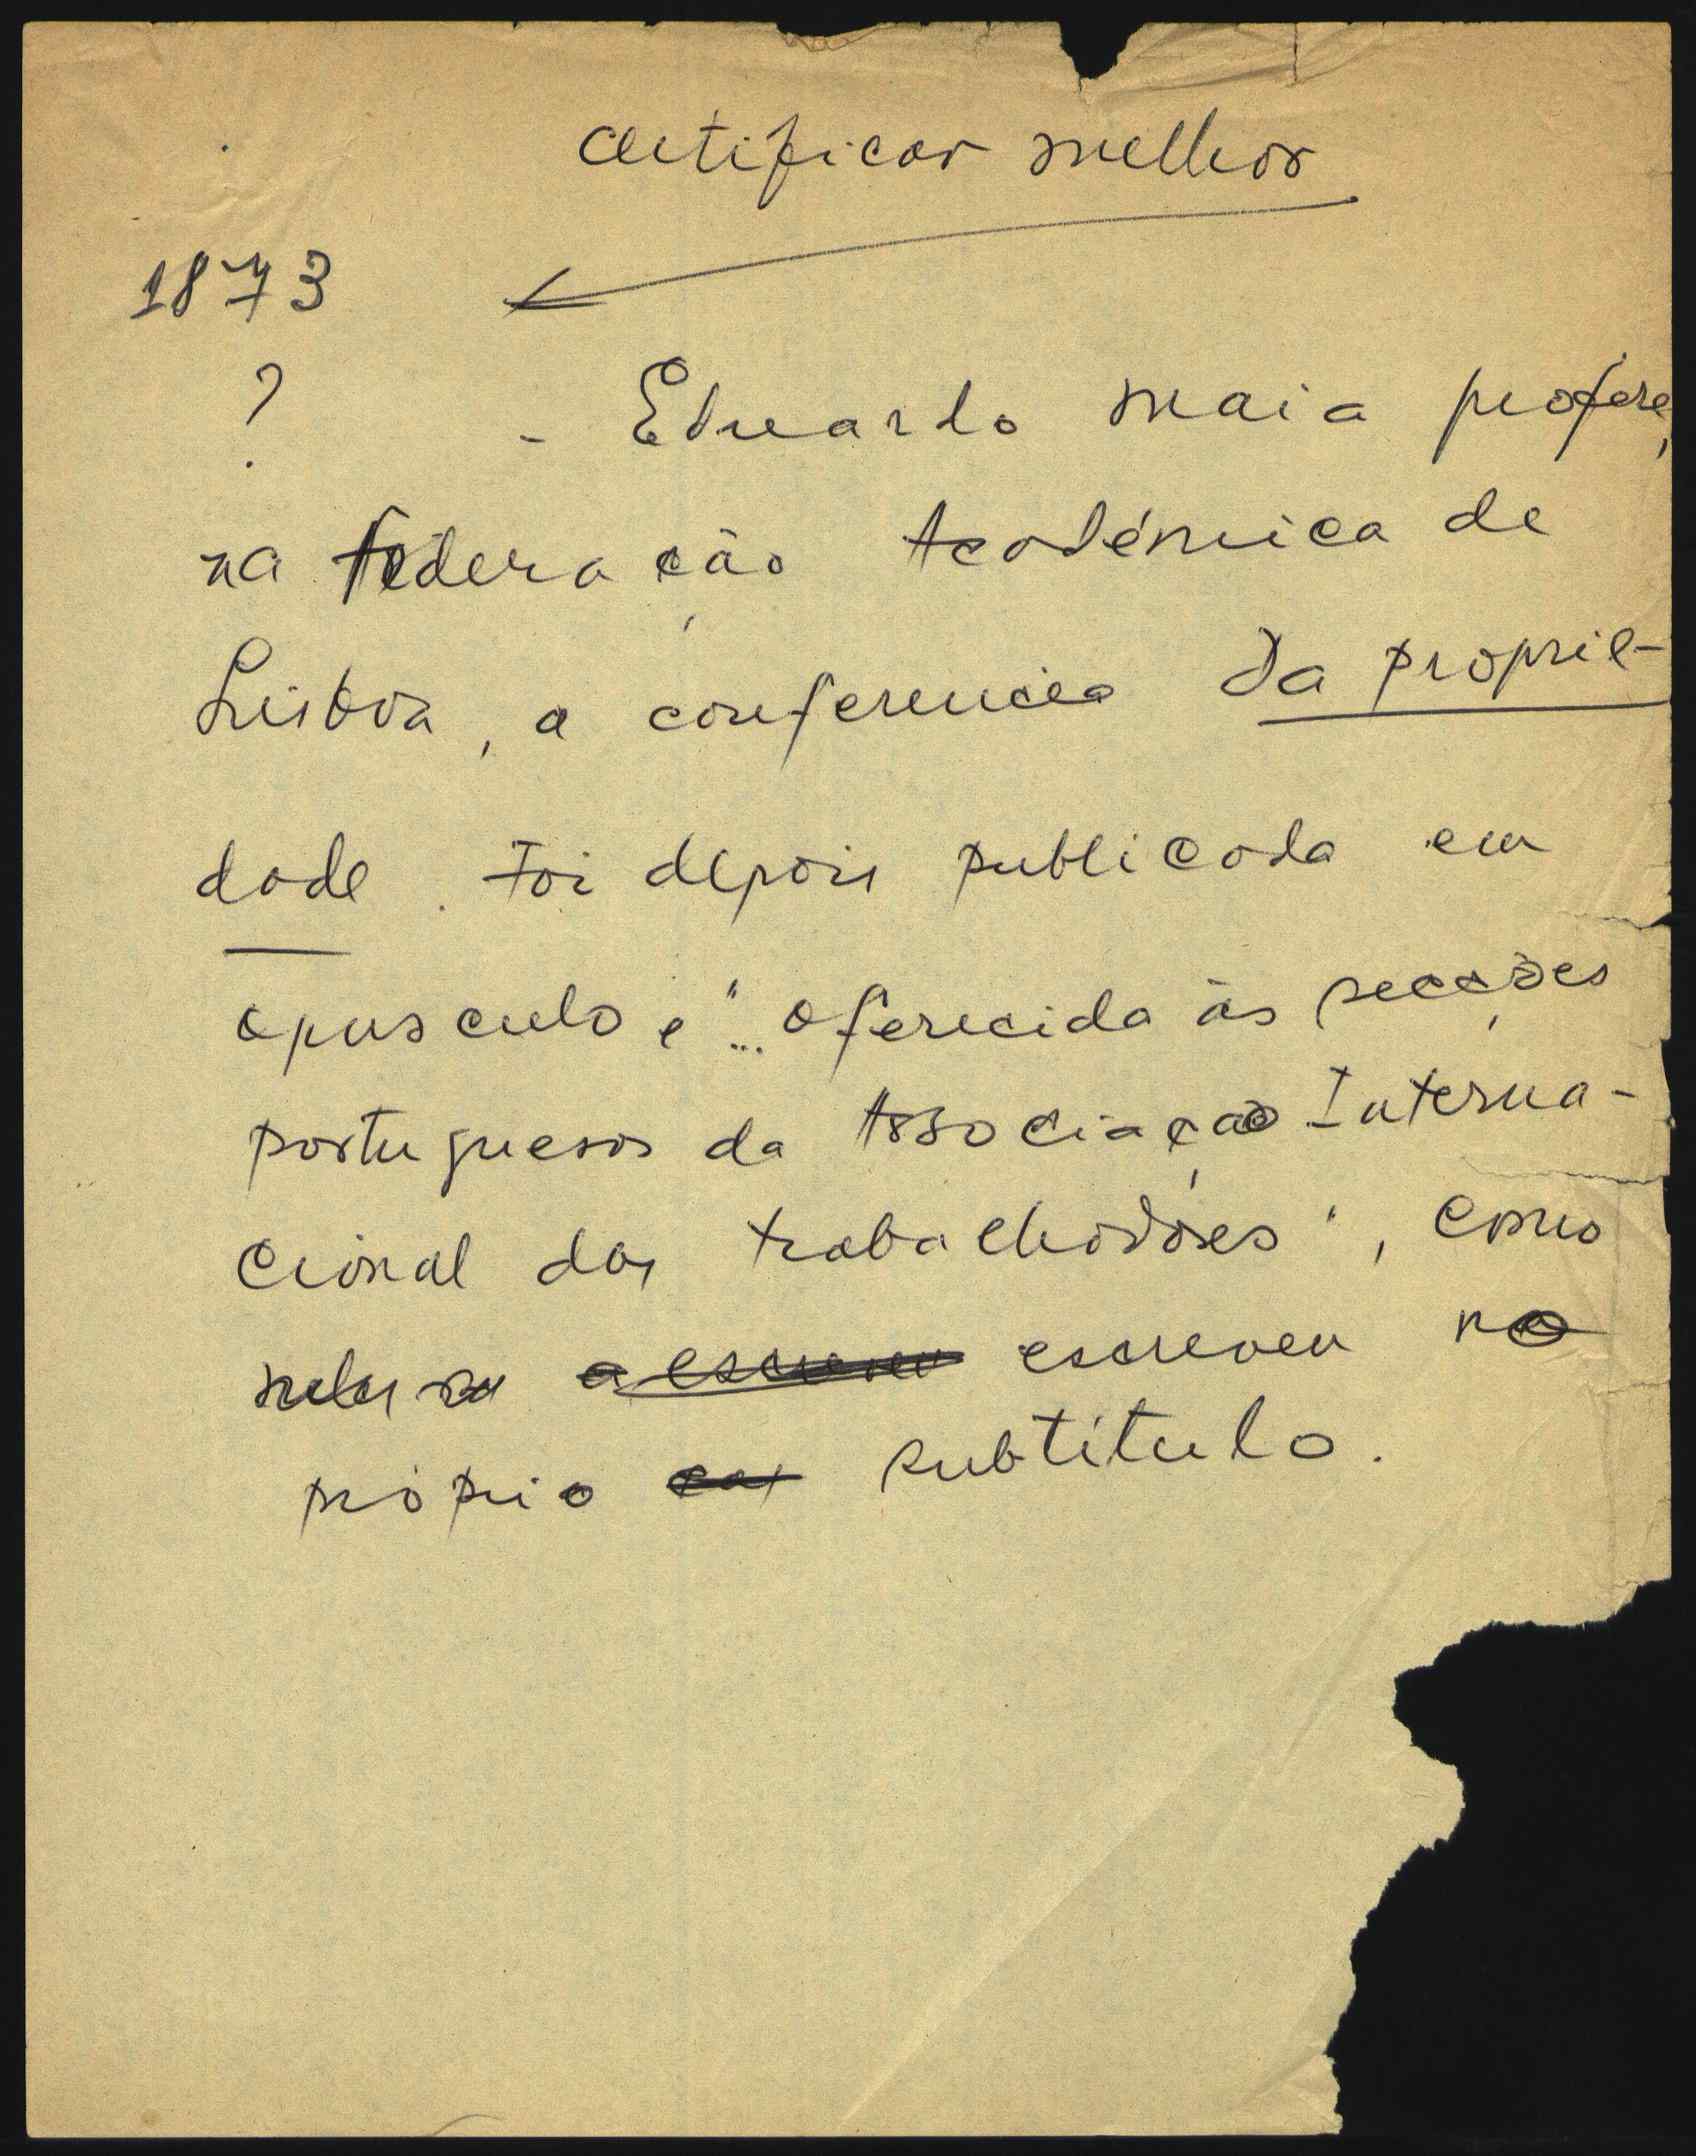 certificar melhor
1873
? - Eduardo Maia profere,
na Federação Académica de
Lisboa, a conferencia Da proprie-
dade. Foi depois publicada em
opusculo e "... oferecida às secções
portuguesas da Associação Interna-
cional dos trabalhadores", como
a escreveu escreveu no
próprio subtítulo.